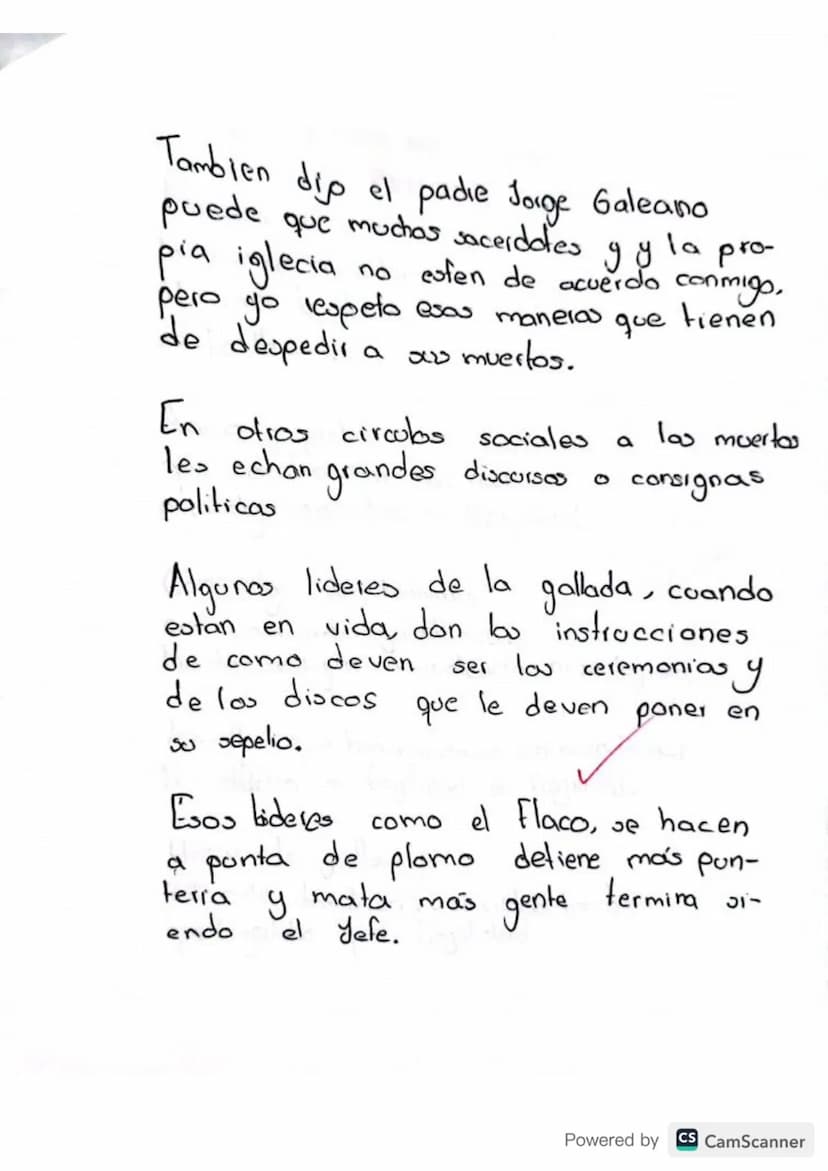 Tambien dijo el padre Jorge Galeano
puede que muchos sacerdotes y y la pro-
pia iglecia no esten de acuerdo conmigo,
pero yo respeto esas maneras que tienen
de despedir a sus muertos.
En otros circulos sociales a los muertos
les echan grandes discursos o consignas
politicas
Algunos lideres de la gallada, cuando
estan en vida, dan las instrucciones
de como deven ser las ceremonias y
de los discos que le deven poner en
su sepelio.
Esos lideres como el Flaco, se hacen
a punta de plomo detiene más pun-
teria y mata más gente termina si-
endo el Jefe.
Powered by CS CamScanner